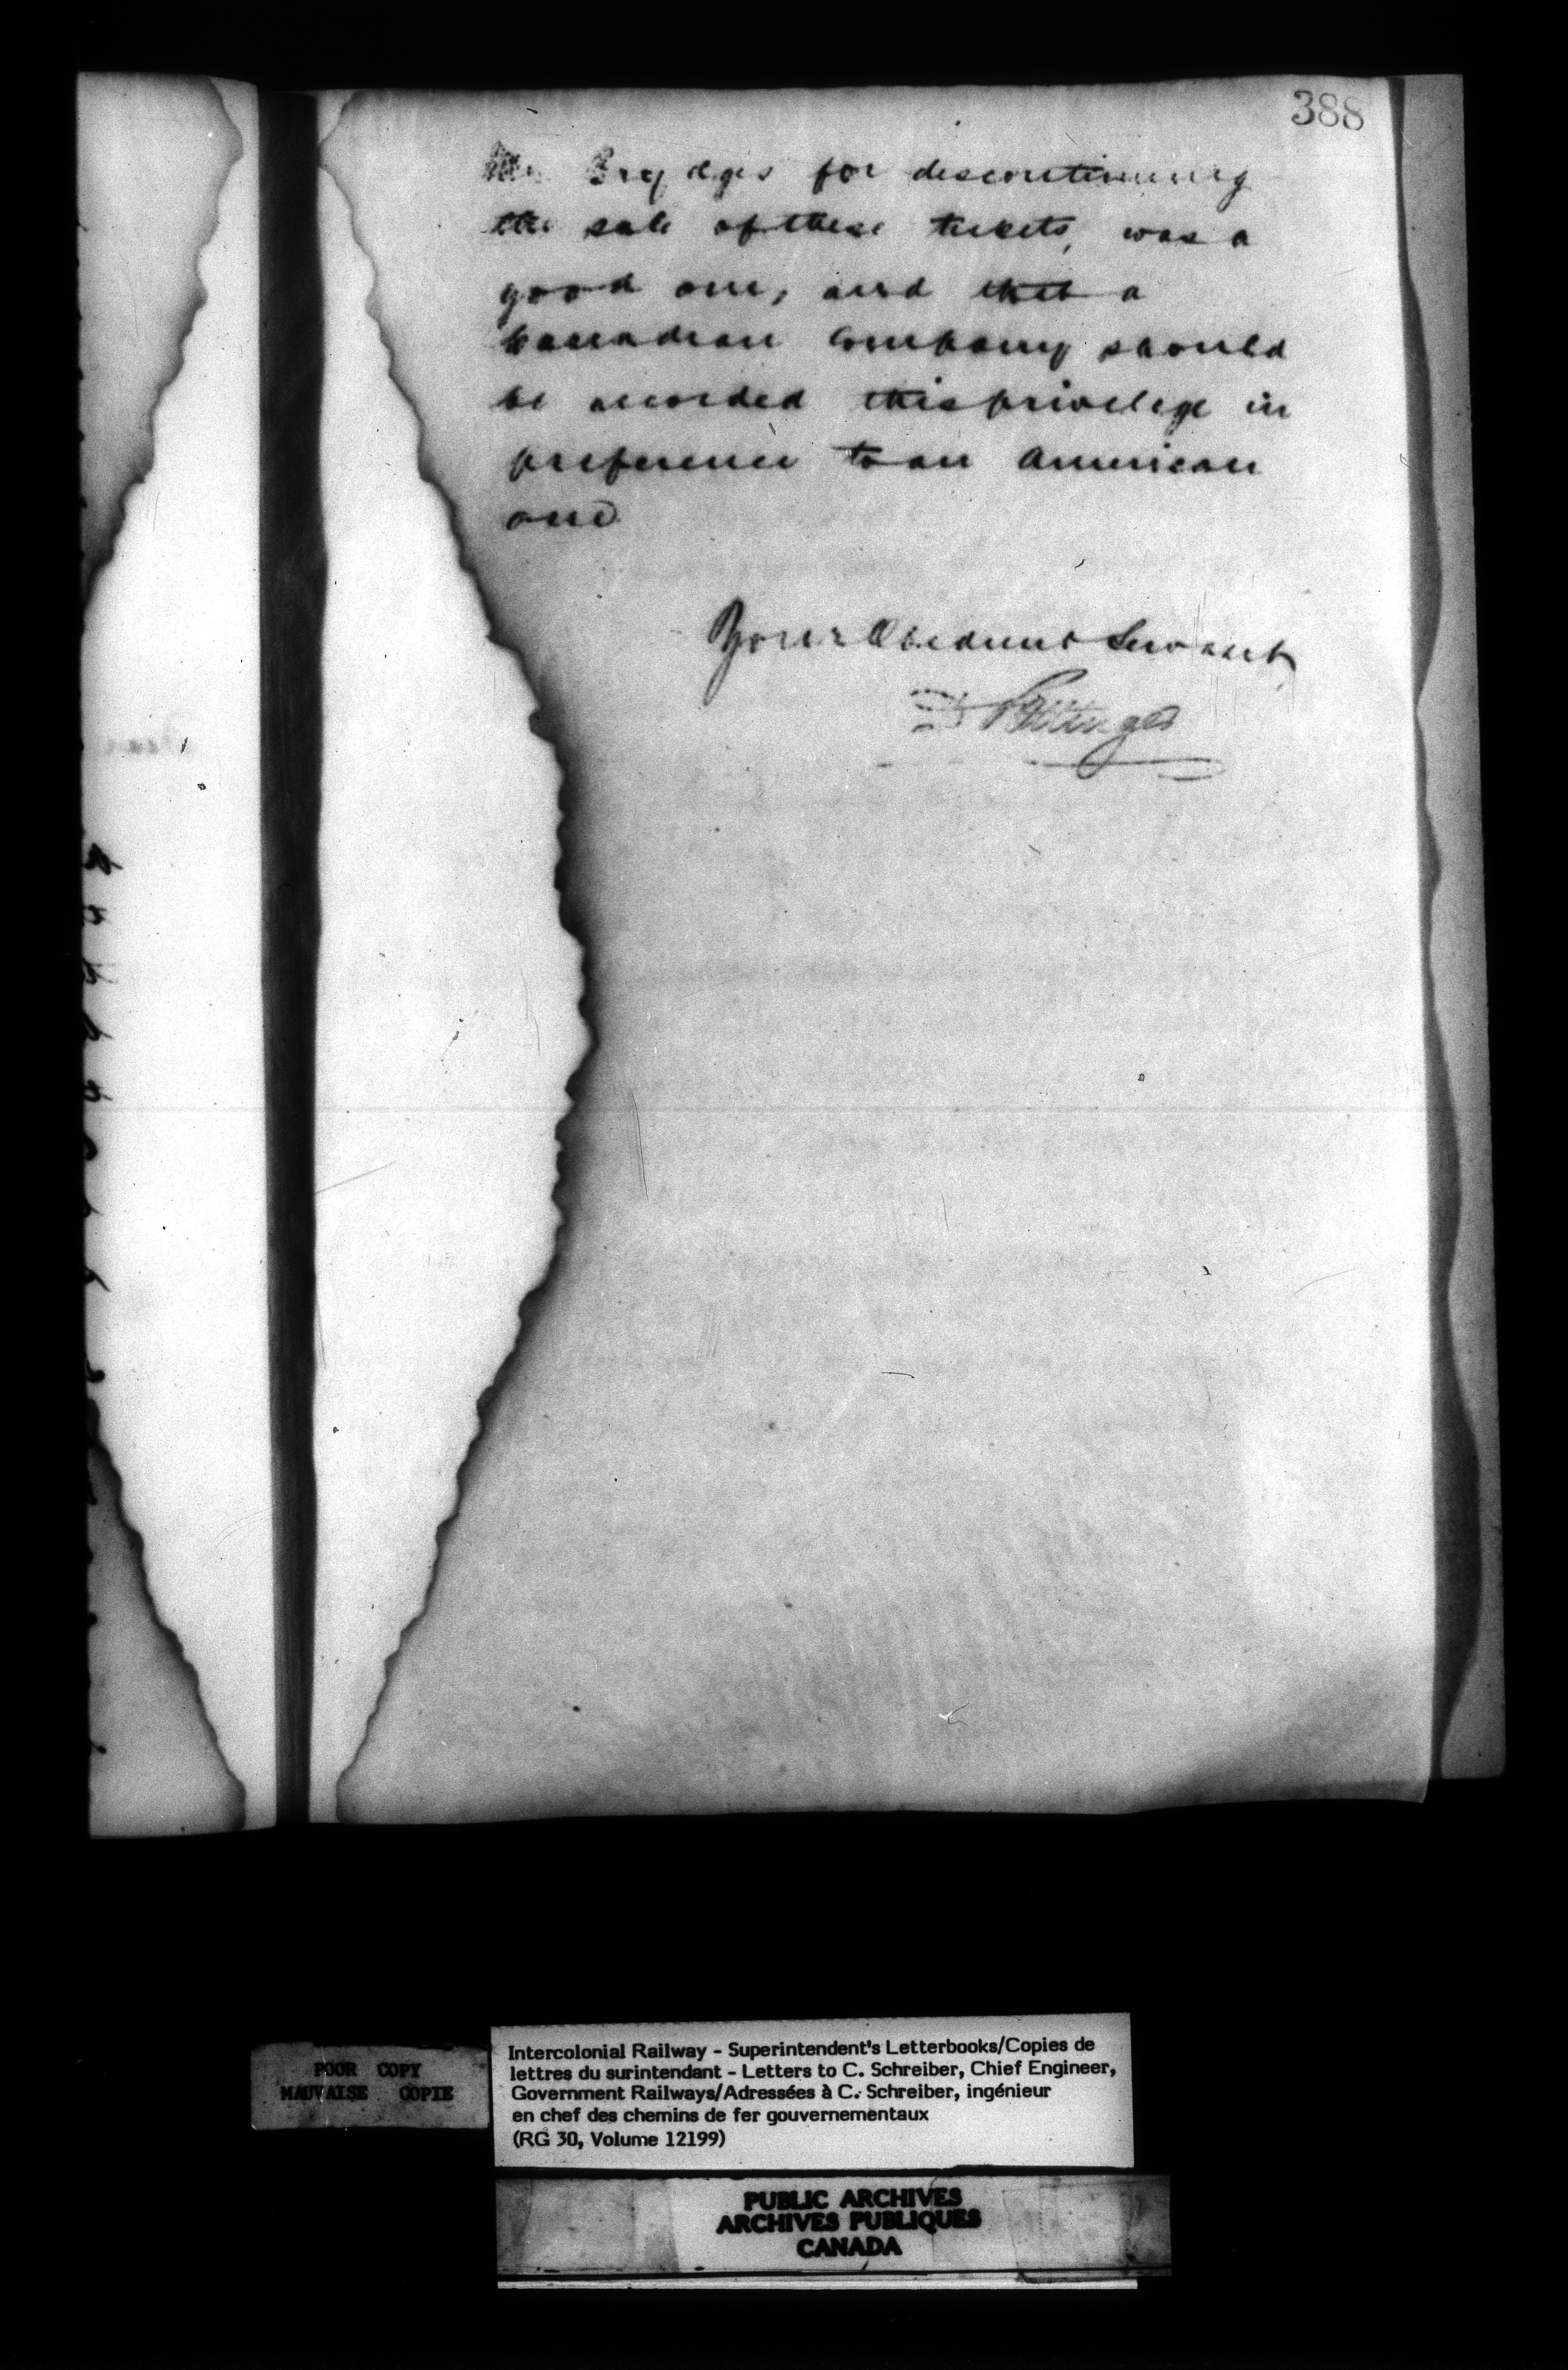 388
Mr. Brydges for discontinuing
the sale of these tickets, was a
good one, and that a
Canadian Company should
be accorded this privilege in
preference to an American
one
Your Obedient Servant
D Pottinger
POOR COPY
MAUVAISE COPIE
Intercolonial Railway - Superintendent's Letterbooks/Copies de
lettres du surintendant - Letters to C. Schreiber, Chief Engineer,
Government Railways/Adressées à C. Schreiber, ingénieur
en chef des chemins de fer gouvernementaux
(RG 30, Volume 12199)
PUBLIC ARCHIVES
ARCHIVES PUBLIQUES
CANADA